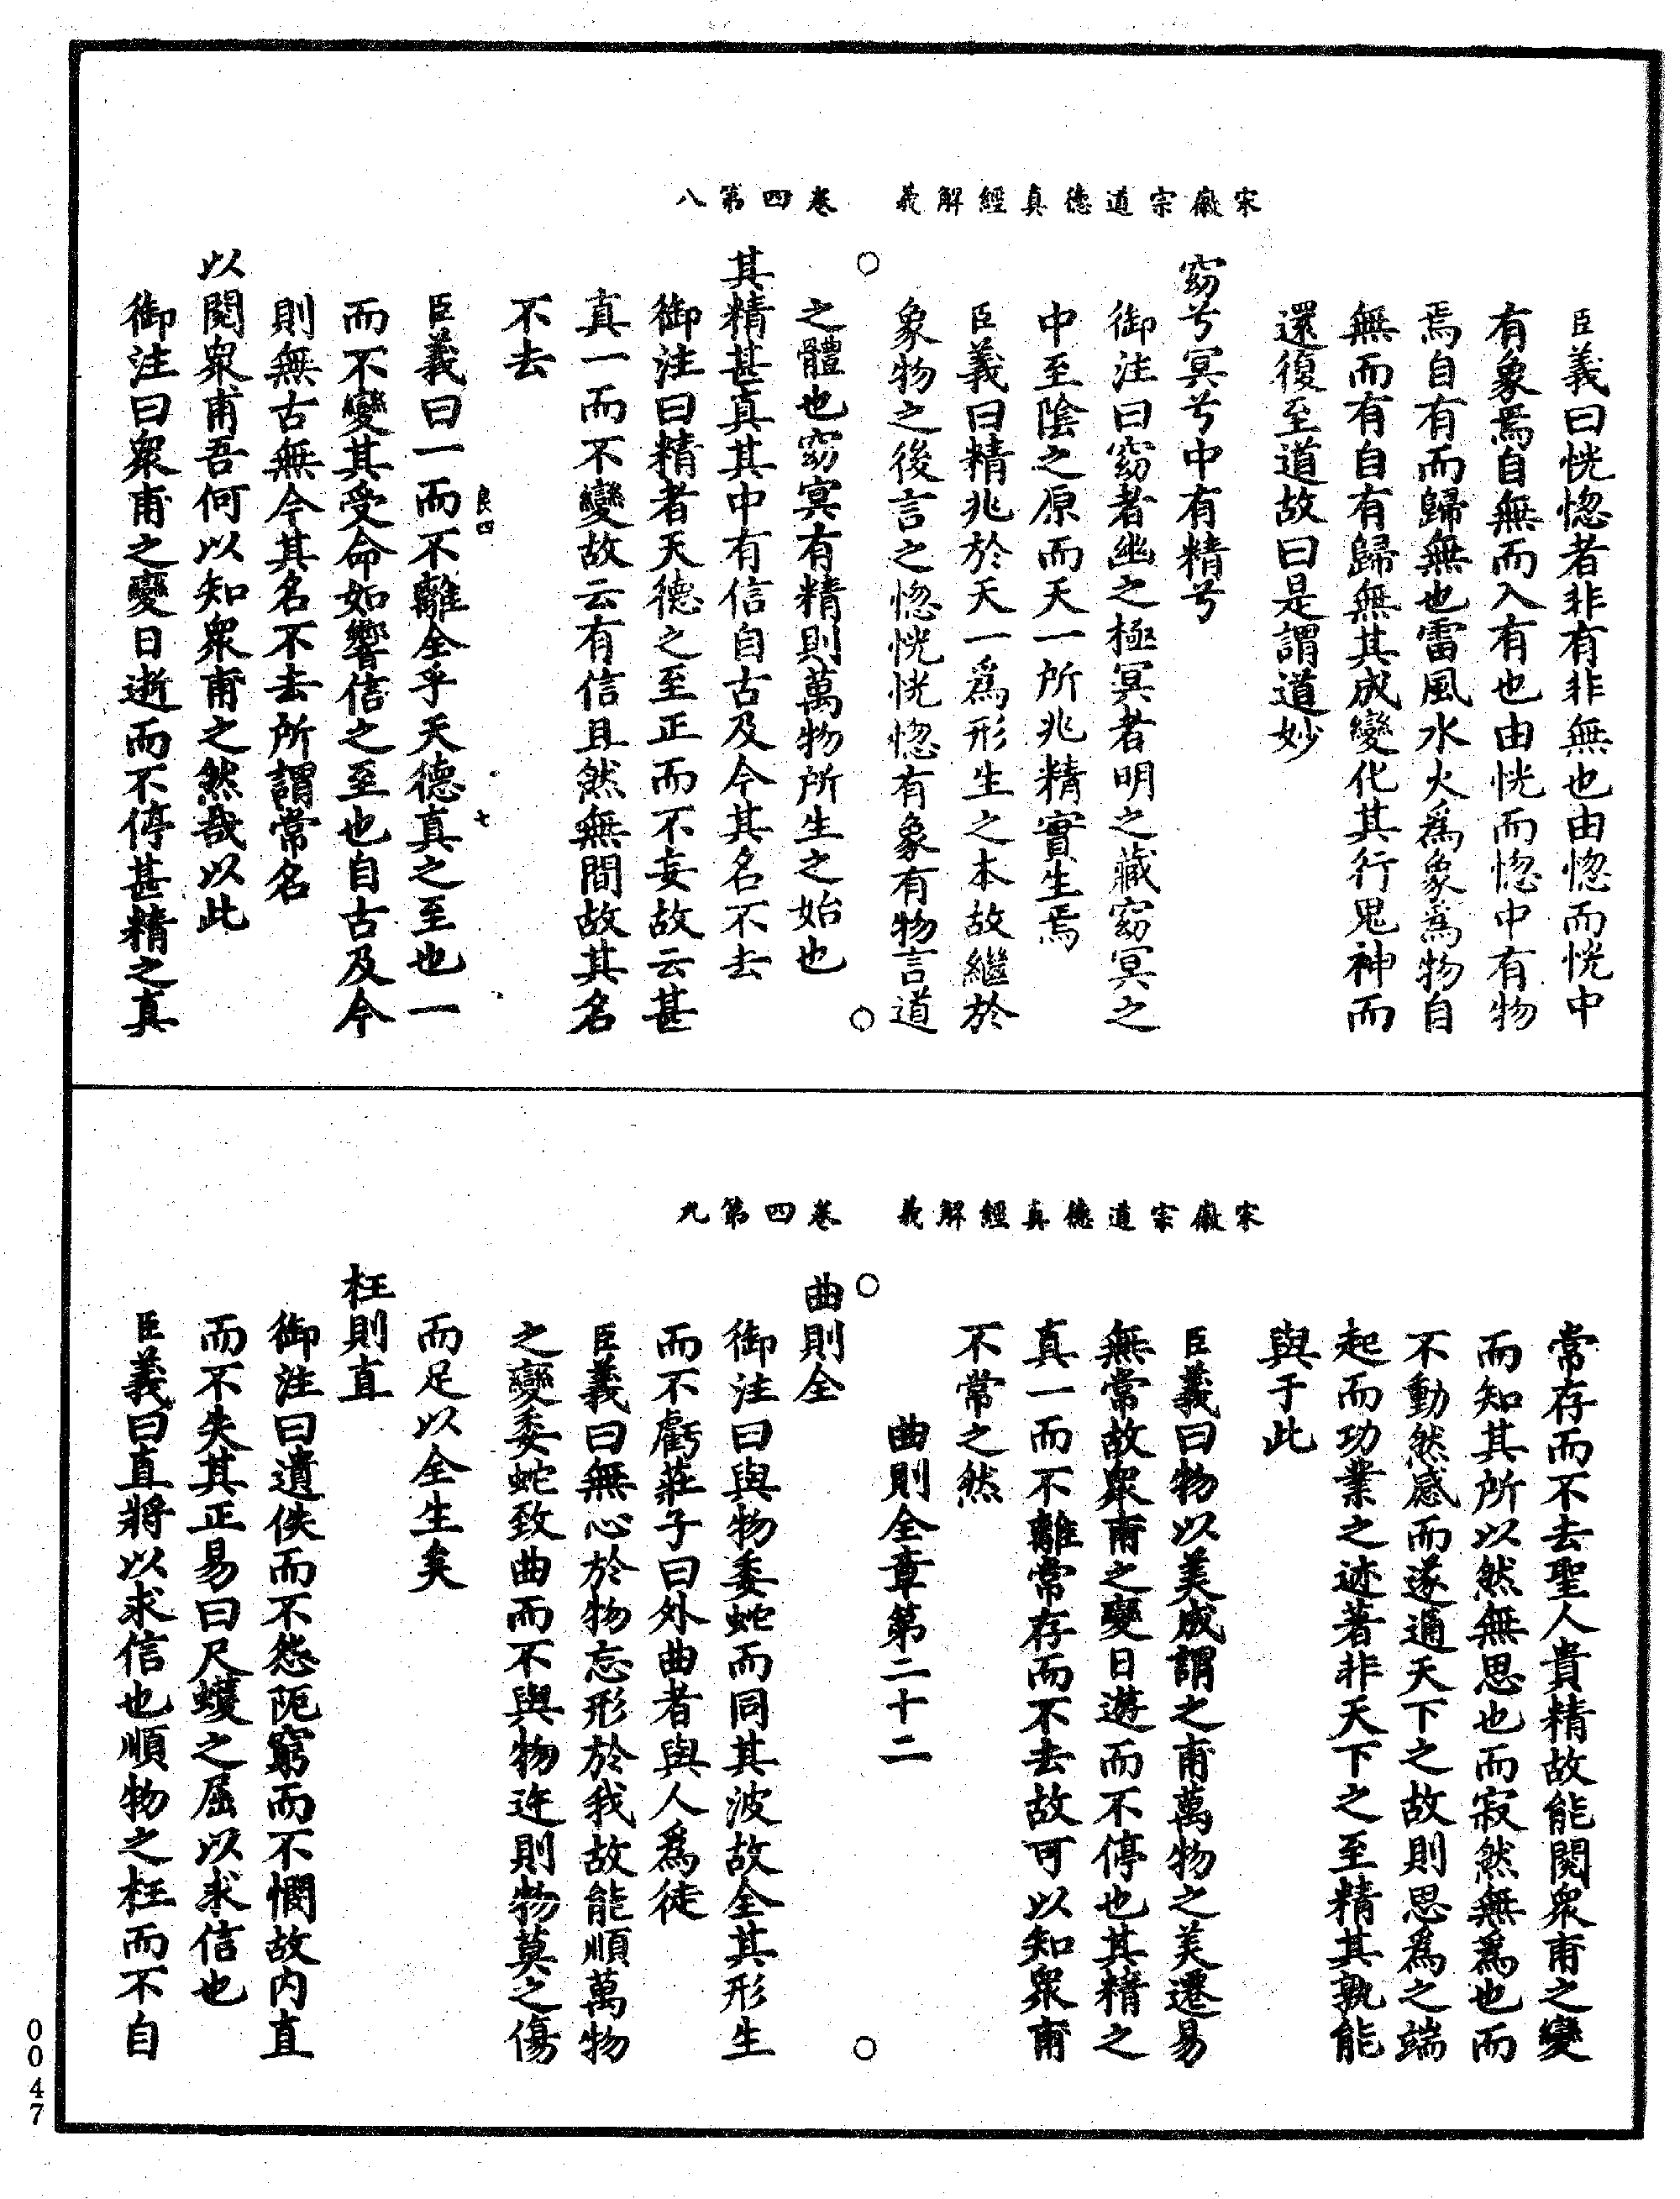 宋徽宗道德真經解義　卷四第八
臣義曰恍惚者非有非無也由惚而恍中
有象焉自無而入有也由恍而惚中有物
焉自有而歸無也雷風水火爲象爲物自
無而有自有歸無其成變化其行鬼神而
還復至道故曰是謂道妙
窈兮冥兮中有精兮
御注曰窈者幽之極冥者明之藏窈冥之
中至陰之原而天一所兆精實生焉
臣義曰精兆於天一爲形生之本故繼於
象物之後言之惚恍恍惚有象有物言道
之體也窈冥有精則萬物所生之始也
其精甚真其中有信自古及今其名不去
御注曰精者天德之至正而不妄故云甚
真一而不變故云有信且然無間故其名
不去
良四　七
臣義曰一而不離全乎天德真之至也一
而不變其受命如響信之至也自古及今
則無古無今其名不去所謂常名
以閱衆甫吾何以知衆甫之然哉以此
御注曰衆甫之變日逝而不停甚精之真
宋徽宗道德真經解義　卷四第九
常存而不去聖人貴精故能閱衆甫之變
而知其所以然無思也而寂然無爲也而
不動然感而遂通天下之故則思爲之端
起而功業之迹著非天下之至精其孰能
與于此
臣義曰物以美成謂之甫萬物之美遷易
無常故衆甫之變日遊而不停也其精之
真一而不離常存而不去故可以知衆甫
不常之然
曲則全章第二十二
曲則全
御注曰與物委蛇而同其波故全其形生
而不虧莊子曰外曲者與人爲徒
臣義曰無心於物忘形於我故能順萬物
之變委蛇致曲而不與物迕則物莫之傷
而足以全生矣
枉則直
御注曰遺佚而不怨阨窮而不憫故内直
而不失其正易曰尺蠖之屈以求信也
臣義曰直將以求信也順物之枉而不自
0047